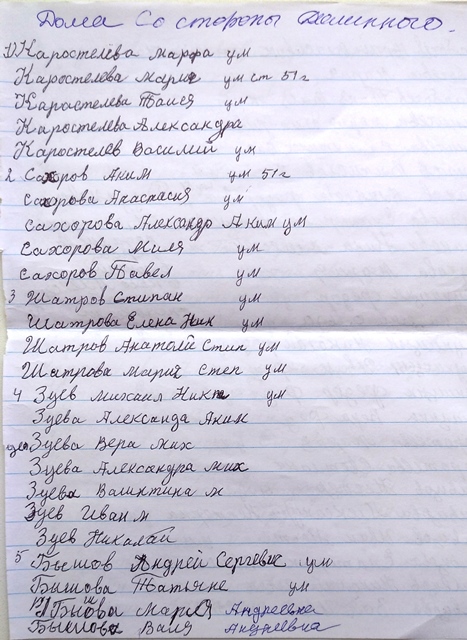 Дома со стороны Зелинного.
1) Каростелёва Марфа ум
Каростелёва Мария ум ст 51 г
Каростелева Таися ум
Каростелёва Александра
Каростелёв Василий ум
2 Сахоров Аким ум 51 г
Сахорова Анастасия ум
Сахорова Александр Аким ум
Сахорова Миля ум
Сахоров Павел ум
3 Шатров Степан ум
Шатрова Елена Ник ум
Шатров Анатолй Степ ум
Шатрова Мария Степ ум
4 Зуев Михаил Ник ум
Зуева Александа Аким
Зуева Вера мих
Зуева Александра мих
Зуева Валинтина м
Зуев Иван м
Зуев Николай
5 Бышов Андрей Сергевис ум
Бышова Татьяне ум
Бышова Мария Андреевна
Бышова Валя Андреевна